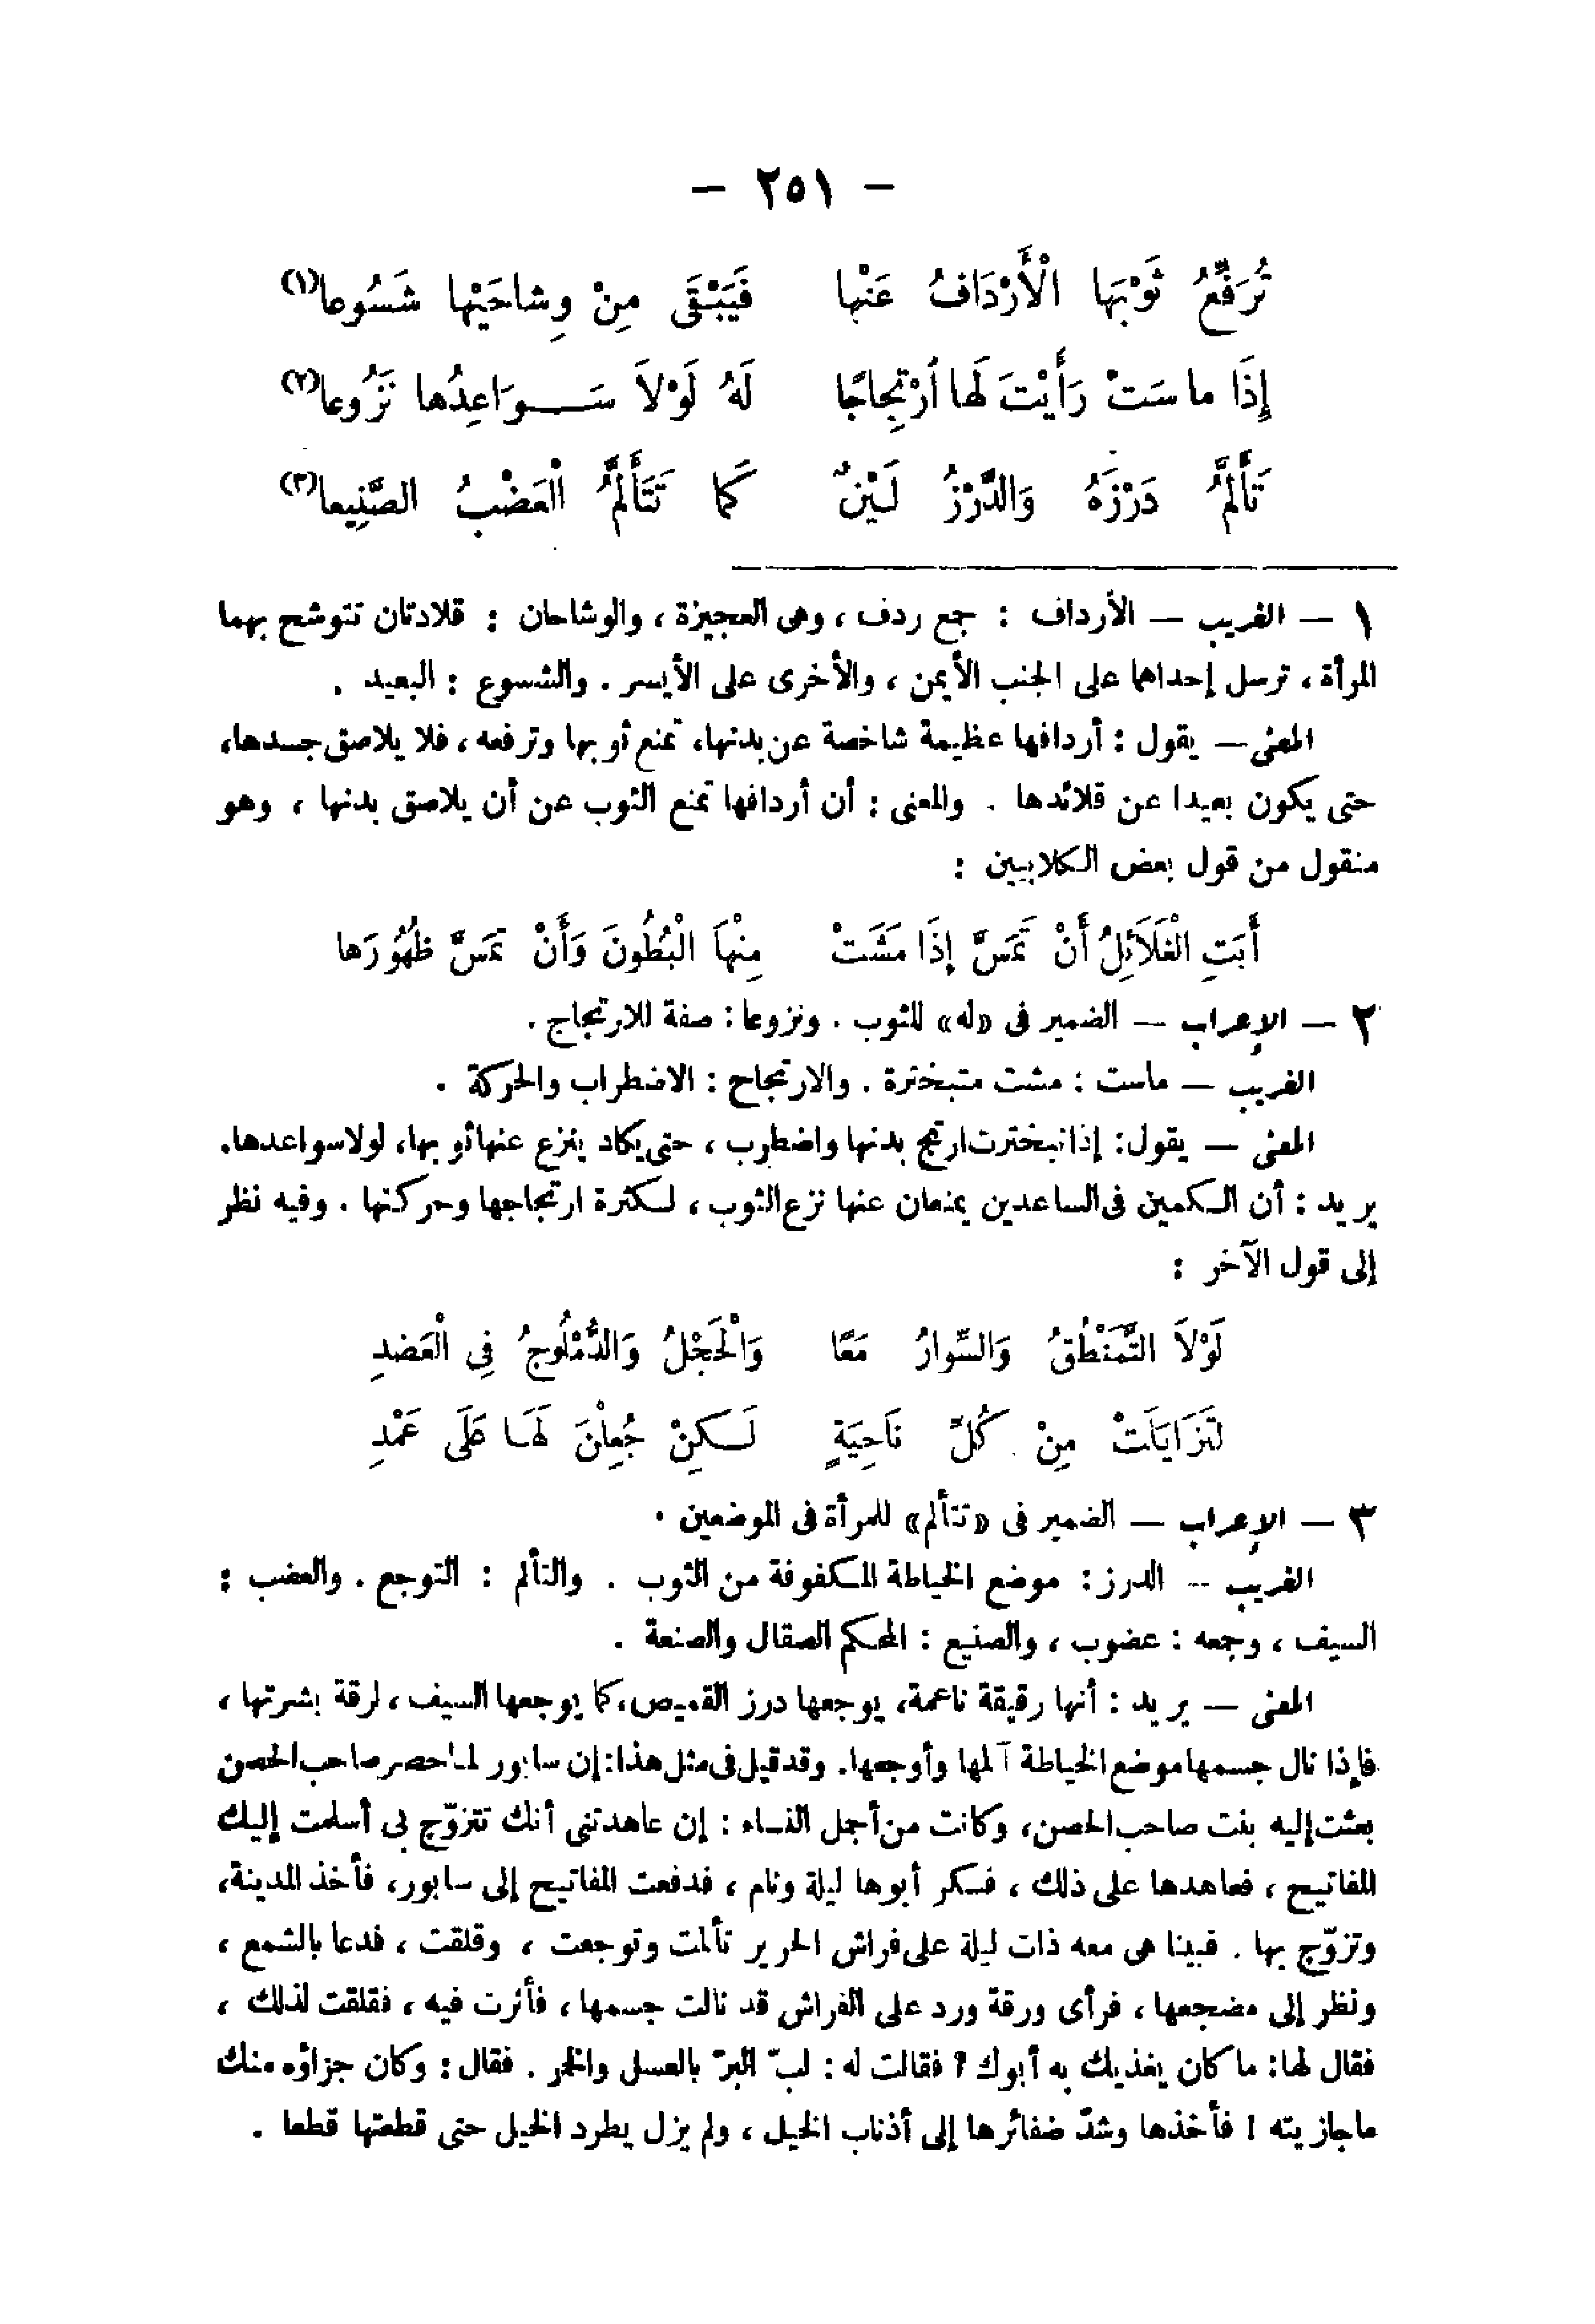 – ٢٥١ –
تُرَفِّعُ ثَوْبَهَا الْأَرْدَافُ عَنْها فَيَبْقَى مِنْ وِشاحَيْها شَسُوعا(١)
إِذَا ماسَتْ رَأَيْتَ لَها اُرْتِجاجًا لَهُ لَوْلاَ سَــوَاعِدُها نَزُوعا(٢)
تَأَلَّمُ دَرْزَهُ وَالدَّرْزُ لَيْنٌ كَما تَتَأَلَّمُ الْعَضْبُ الصَّنِيعا(٣)
١ – الغريب – الأرداف : جمع ردف ، وهى العجيزة ، والوشاحان : قلادتان تتوشح بهما
المرأة ، ترسل إحداهما على الجنب الأيمن ، والأخرى على الأيسر . والشسوع : البعيد .
المعنى – يقول : أردافها عظيمة شاخصة عن بدنها، تمنع ثوبها وترفعه ، فلا يلاصق جسدها،
حتى يكون بعيدا عن قلائدها . والمعنى : أن أردافها تمنع الثوب عن أن يلاصق بدنها ، وهو
منقول من قول بعض الكلابيين :
أَبَتِ الْغَلاَئِلُ أَنْ تَمَسَّ إِذَا مَشَتْ مِنْهاَ الْبُطُونَ وَأَنْ تمَسَّ ظُهُورَها
٢ – الإعراب – الضمير فى «له» للثوب . ونزوعا : صفة للارتجاج .
الغريب – ماست : مشت متبخترة . والارتجاج : الاضطراب والحركة .
المعنى – يقول: إذا تبخترت ارتج بدنها واضطرب ، حتى يكاد ينزع عنها ثوبها، لولا سواعدها.
يريد : أن الكمين فى الساعدين يمنعان عنها نزع الثوب ، لكثرة ارتجاجها وحركتها . وفيه نظر
إلى قول الآخر :
لَوْلاَ التَّمَنْطُقُ وَالسِّوارُ مَعًا وَالْحَجْلُ وَالدُّمْلُوجُ فِى الْعَضدِ
لتَزَايَلَتْ مِنْ كُلِّ نَاحِيَةٍ لَـكِنْ جُعِلْنَ لَهَـا عَلَى عَمْدِ
٣ – الإعراب – الضمير فى «تتألم» للمرأة فى الموضعين .
الغريب – الدرز : موضع الخياطة المكفوفة من الثوب . والتألم : التوجع . والعضب :
السيف ، وجمعه : عضوب ، والصنيع : المحكم الصقال والصنعة .
المعنى – يريد : أنها رقيقة ناعمة، يوجعها درز القميص، كما يوجعها السيف ، لرقة بشرتها ،
فإذا نال جسمها موضع الخياطة آلمها وأوجعها. وقد قيل فى مثل هذا: إن سابور لما حصر صاحب الحصن
بعثت إليه بنت صاحب الحصن، وكانت من أجمل النساء : إن عاهدتنى أنك تتزوّج بى أسلمت إليك
المفاتيح ، فعاهدها على ذلك ، فسكر أبوها ليلة ونام ، فدفعت المفاتيح إلى سابور، فأخذ المدينة،
وتزوّج بها . فبينا هى معه ذات ليلة على فراش الحرير تألمت وتوجعت ، وقلقت ، فدعا بالشمع ،
ونظر إلى مضجعها ، فرأى ورقة ورد على الفراش قد نالت جسمها ، فأثرت فيه ، فقلقت لذلك ،
فقال لها: ما كان يغذيك به أبوك ؟ فقالت له : لبّ البرّ بالعسل والخمر . فقال : وكان جزاؤه منك
ماجازيته ! فأخذها وشدّ ضفائرها إلى أذناب الخيل ، ولم يزل يطرد الخيل حتى قطعتها قطعا .